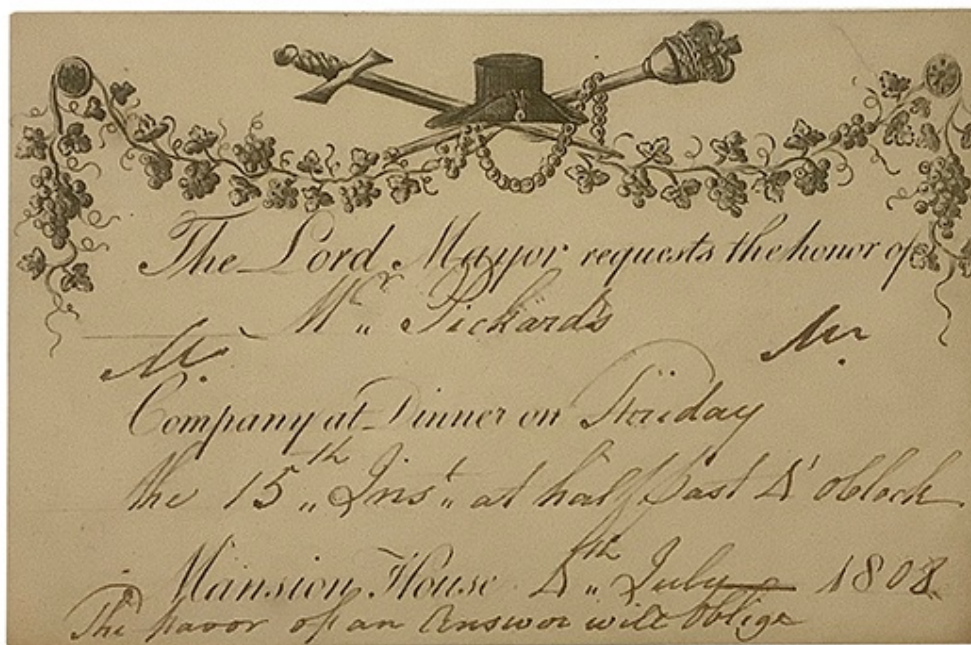 The Lord Mayor requests the honor of
Mr „ Pickard's
Company at Dinner on Friday
the 15th „ Inst „ at half past 4 o'Clock
Mansion House 4th „ July 1808
The favor of an Answer will oblige